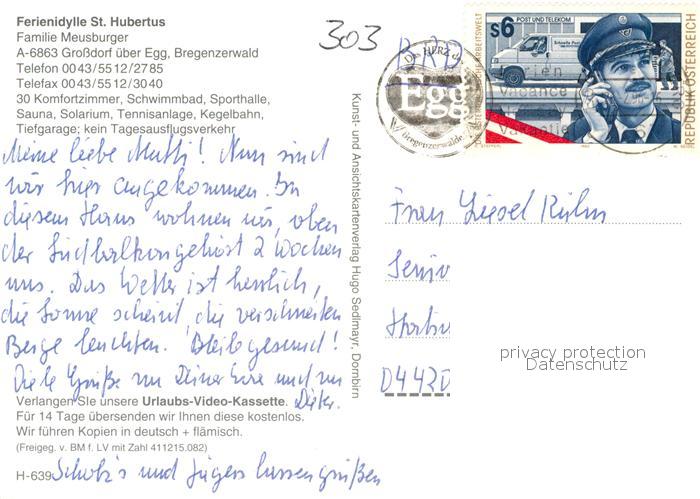 Ferienidylle St. Hubertus
Familie Meusburger
A-6863 Großdorf über Egg, Bregenzerwald
Telefon 00 43/55 12/27 85
Telefax 00 43/55 12/30 40
30 Komfortzimmer, Schwimmbad, Sporthalle,
Sauna, Solarium, Tennisanlage, Kegelbahn,
Tiefgarage; kein Tagesausflugsverkehr
Meine liebe Mutti! Nun sind
wir hier angekommen. In
diesem Haus wohnen wir, oben
der Südbalkon gehört 2 Wochen
uns. Das Wetter ist herrlich,
die Sonne scheint, die verschneiten
Berge leuchten. Bleib gesund!
Viele Grüße von Deiner und von
Dieter.
Verlangen Sie unsere Urlaubs-Video-Kassette.
Für 14 Tage übersenden wir Ihnen diese kostenlos.
Wir führen Kopien in deutsch + flämisch.
(Freigeg. v. BM f. LV mit Zahl 411215.082)
H-639
Scholz's und Jägers lassen grüßen
Kunst- und Ansichtskartenverlag Hugo Sedlmayr, Dornbirn
303
BRD
Das HERZ
Egg
Bregenzerwaldes
S6
POST UND TELEKOM
REPUBLIK ÖSTERREICH
Ferien
Vacance
Frau Liesel Kühn
D4420
privacy protection
Datenschutz